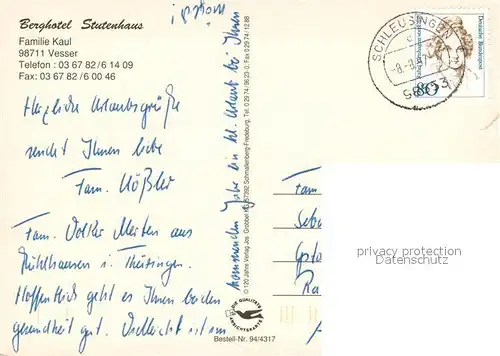 Berghotel Stutenhaus
Familie Kaul
98711 Vesser
Telefon : 03 67 82 / 6 14 09
Fax: 03 67 82 / 6 00 46
Herzliche Urlaubsgrüße
sendet Ihnen liebe
Fam. Rößler
Fam. Volker Merten aus
Mühlhausen i. Thüringen.
Hoffentlich geht es Ihnen beiden
gesundheit gut. Vielleicht ist im
kommenden Jahr ein kl. Urlaub bei Ihnen
© 120 Jahre Verlag Jos. Grobbel KG, 57392 Schmallenberg-Fredeburg, Tel. 0 29 74 / 96 23-0, Fax 0 29 74 / 12 88
DIE QUALITÄTS
ANSICHTSKARTE
Bestell-Nr. 94/4317
SCHLEUSINGEN
98553
Deutsche Bundespost
Fam.
privacy protection
DATENSCHUTZ